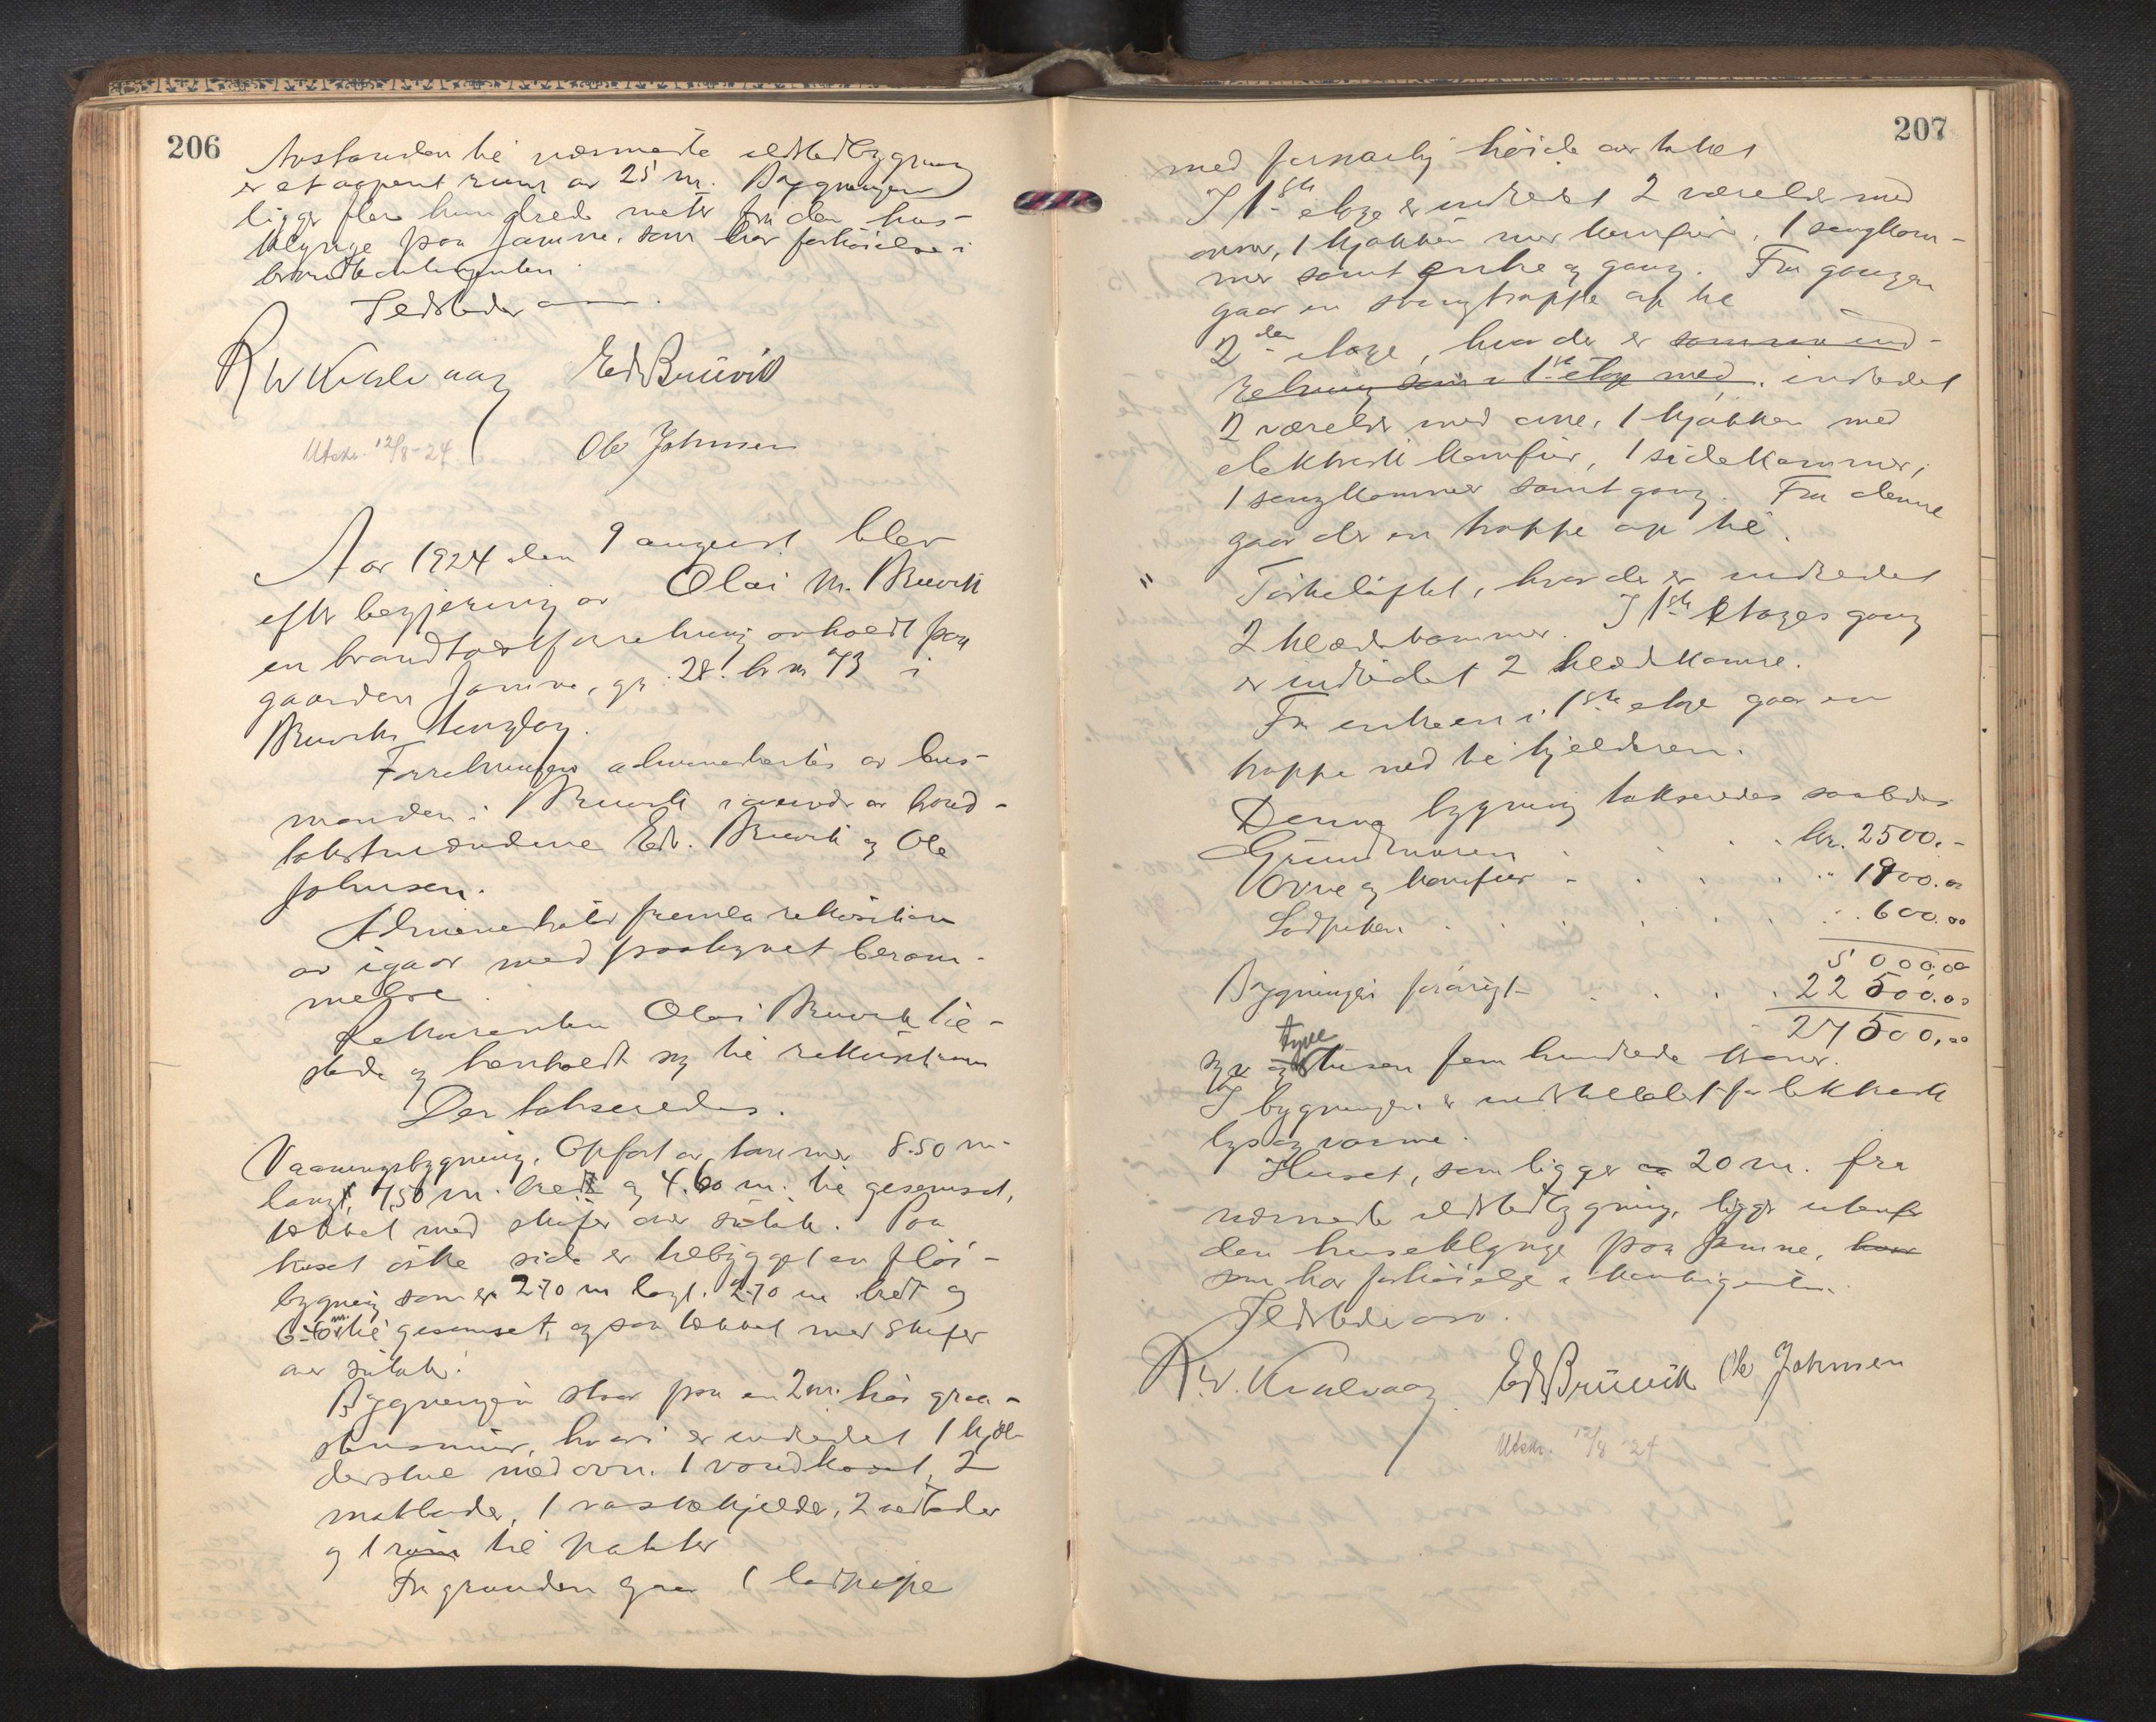 206
Avstanden til nærmeste ildstedbygning
er et aapent rum av 25 m. Bygningen
ligger flere hundrede meter fra den hus-
klynge paa Jamne, som har forhöielse i
brandkontingenten.
Ildsteder ano.
R W Kvalvaag Edv Bruvik
Ole Johnsen
Utskr. 12/8-24
Aar 1924 den 9 august blev
efter begjæring av Olai M. Bruvik
en brandtakstforretning avholdt paa
gaarden Jamne, gr. 28. br nr 73 i
Bruviks tinglag.
Forretningen administertes av lens-
manden i Bruvik i nærvær av brand-
takstmændene Edv. Bruvik og Ole
Johnsen.
Administrator fremla rekvisition
av igaar med paategnet beram-
melse.
Rekvirenten Olai Bruvik til-
stede og henholdt sig til rekvisitionen
Der takseredes.
Vaaningsbygning. Opfört av tømmer 8.50 m.
langt, 7,50 m. bredt og 4.60 m. til gesemset,
tækket med skifer over sutak. Paa
huset östre side er tilbygget en flöi-
bygning som er 2.70 m langt. 2.70 m bredt og
6.40 m. til gesemset, ogsaa tækket med skifer
over sutak.
Bygningen staar paa en 2 m. höi graa-
stensmur, hvori er indredet 1 kjæl-
derstue med ovn. 1 vandkloset, 2
matboder, 1 vaskekjelder, 2 vedboder
og 1 rum til poteter
Fra grunden gaar 1 lodpipe
207
med forsvarlig höide over taket
I 1ste etage er indredet 2 værelser med
ovner, 1 kjøkken med komfur, 1 sengkam-
mer samt entre og gang. Fra gangen
gaar en svingtrappe op til
2den etage, hvor der er samme ind-
retning som i 1ste etage med. indredet
2 værelser med ovne, 1 kjøkken med
elektrisk komfur, 1 sidekammer,
1 sengkammer samt gang. Fra denne
gaar der en trappe op til.
" Törkeloftet, hvor der er indredet
2 klædekammer. I 1ste etages gang
er indredet 2 klædkamre.
Fra entreen i 1ste etage gaar en
trappe ned til kjelderen.
Denne bygning takseredes saaledes
Grundmuren . . . . kr. 2500.-
Ovne og komfur . . . . " 1900.00
Lodpiben . . . . . 600.00
5 000.00
Bygningen forövrigt . . . . 22 500.00
27 500,00
tyve
syv og tusen fem hundrede kroner.
I bygningen er installert for elektrisk
lys og varme.
Huset, som ligger ca 20 m. fra
nærmeste ildstedbygning, ligger utenfor
den huseklynge paa Jamne, hvor
som har forhöielse i kontingenten.
Ildsteder ano.
R. W. Kvalvaag. Edv Bruvik Ole Johnsen
Utskr. 12/8 24